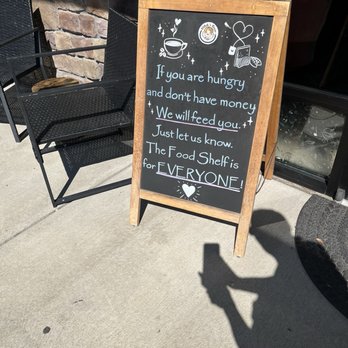 If you are hungry
and don't have money
We will feed you.
Just let us know.
The Food Shelf is
for EVERYONE!